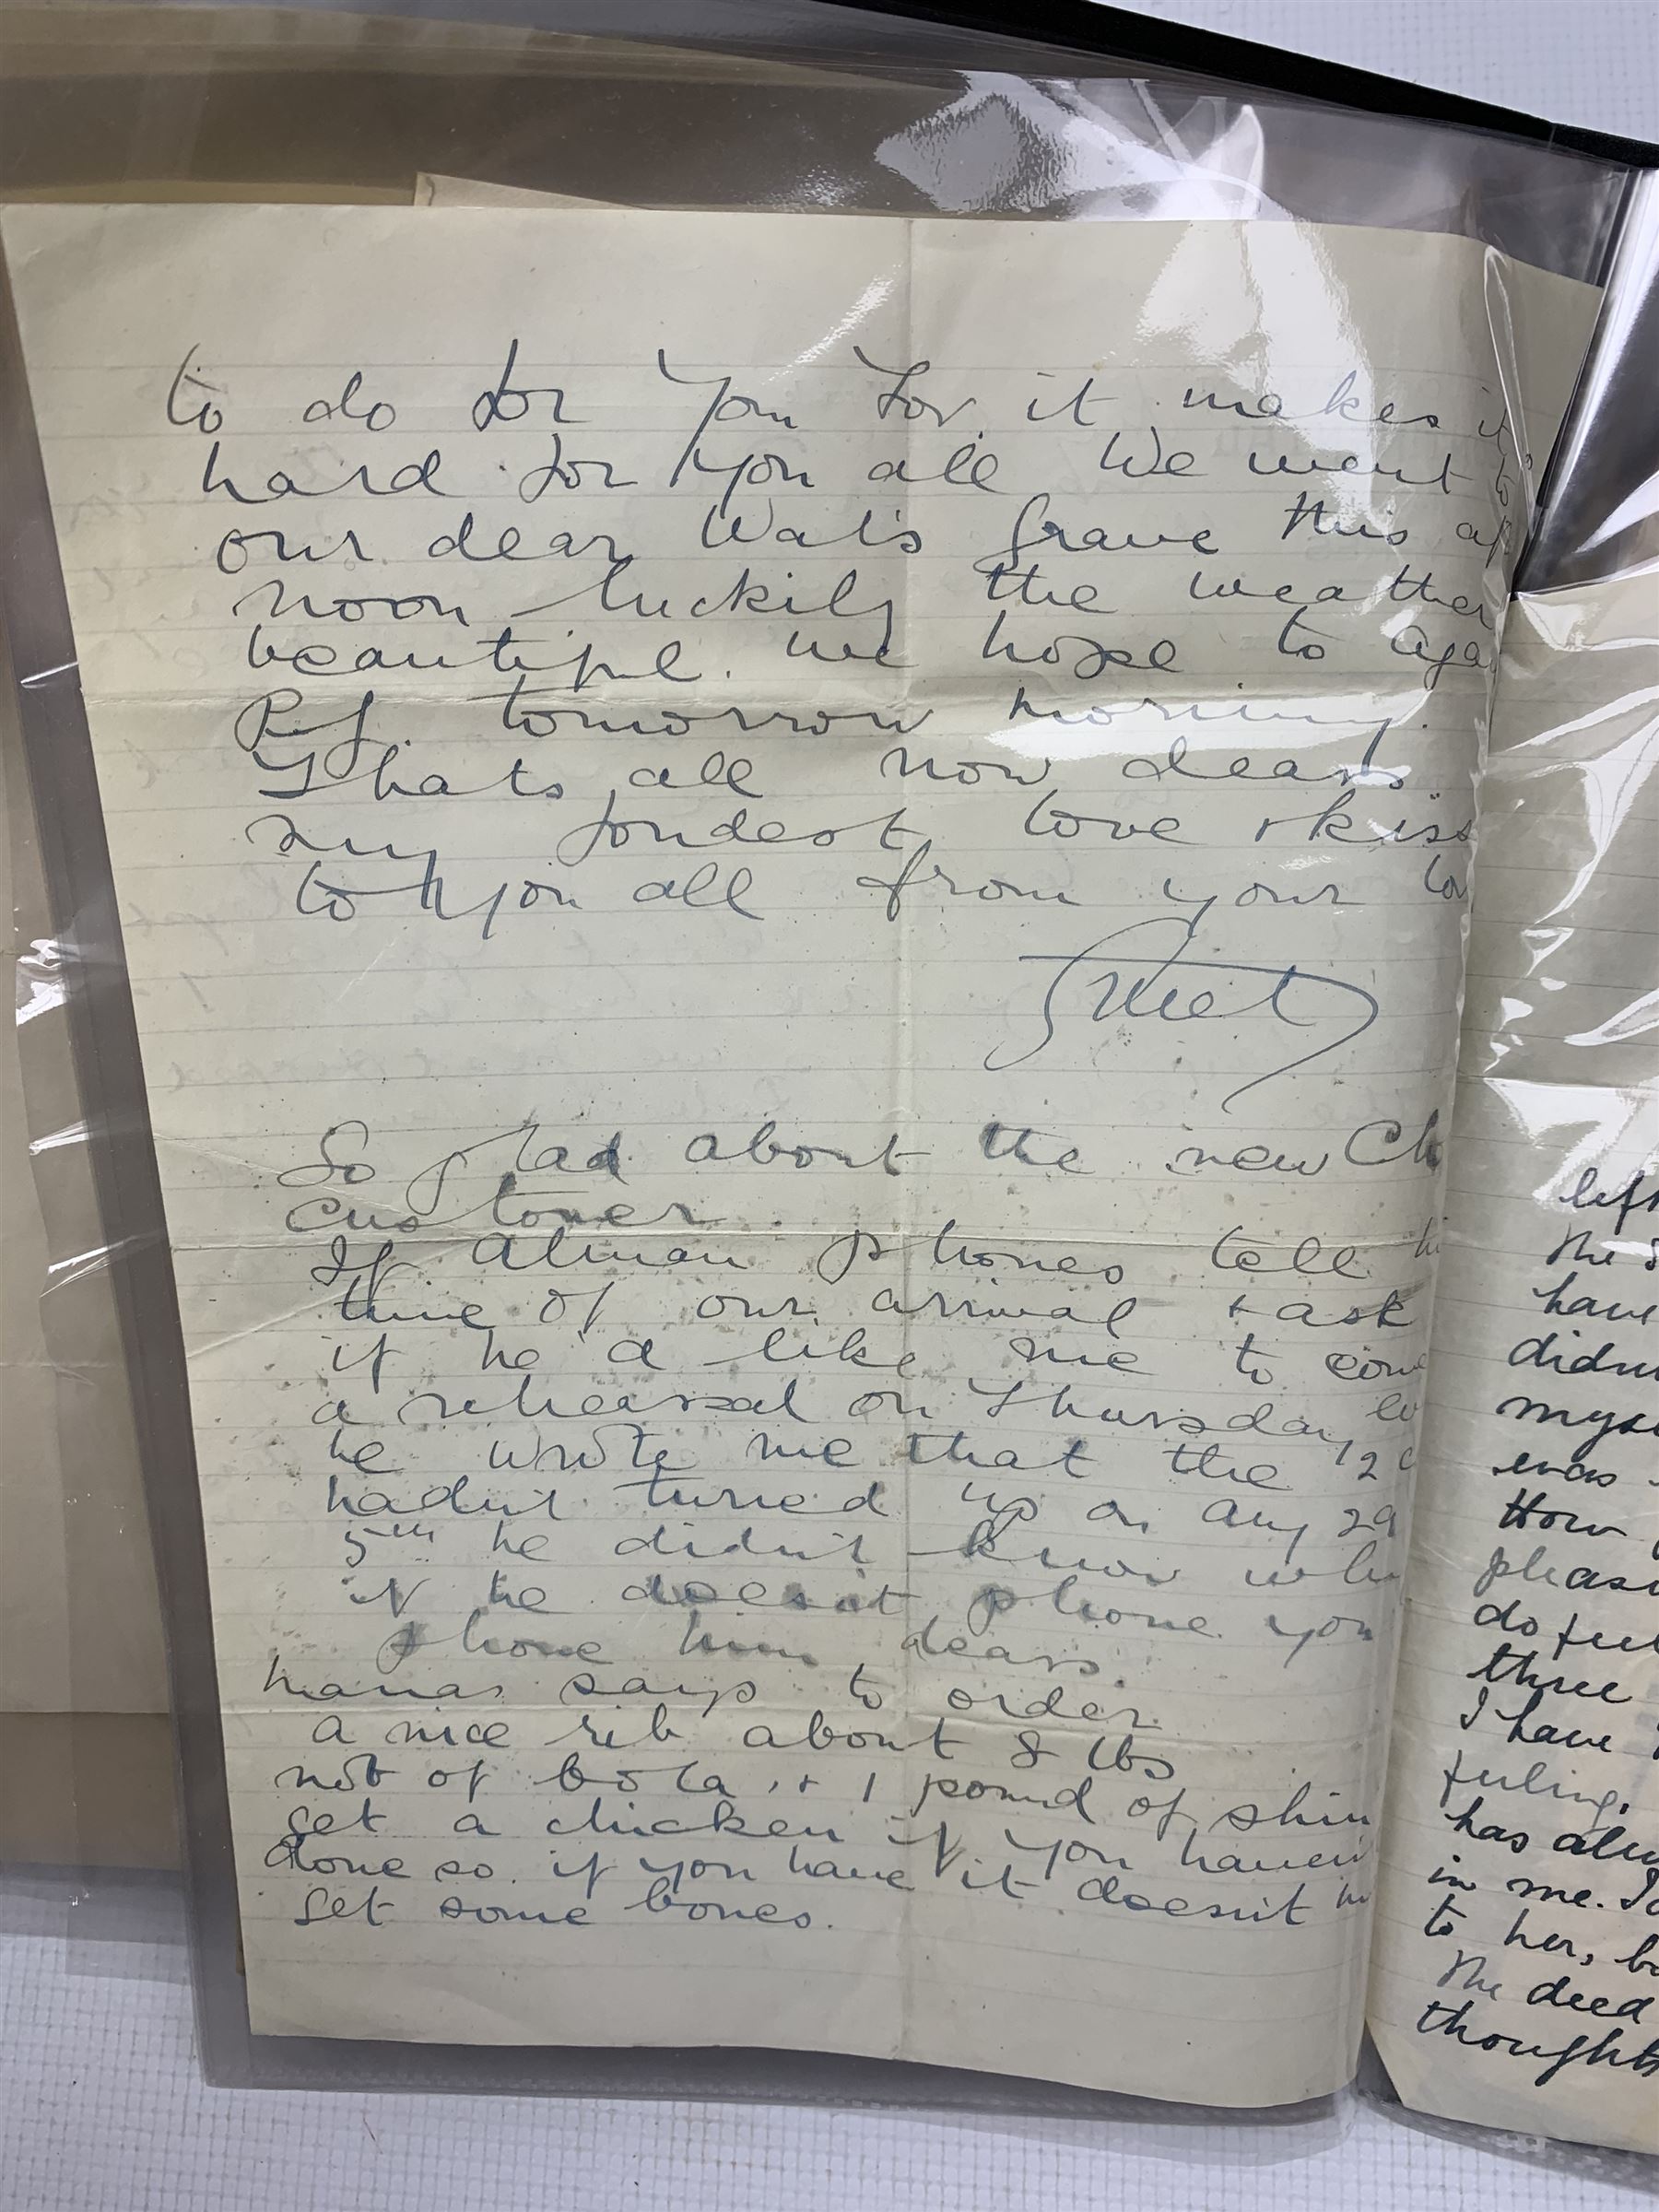 to do for you for it makes it
hard for you all We went to
our dear Wal's grave this af
noon luckily the weather
beautiful. we hope to aga
tomorrow morning.
Thats all now dears.
my fondest love + kiss
to you all from your lo
So glad about the new Ch
customer.
If Alman phones tell hi
time of our arrival + ask
if he'd like me to come
a rehearsal on Thursday
he wrote me that the 12
hadn't turned up on Aug 29
5th he didn't know wh
if he doesnt phone you
phone him dears.
mama says to order
a nice rib about 8 lbs
not of bola, + 1 pound of shin
get a chicken if you haven't
done so. if you have it doesn't m
get some bones.
left
The S
have
didn
myse
was
How
pleas
do feel
three
I have
feeling.
has alw
in me. I
to her, b
The deed
thoughts